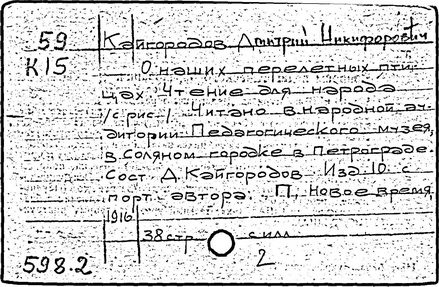 59 Кайгородов Дмитрий Никифорович
К15 О наших перелетных пти-
цах. Чтение для народа
/с рис./ Читано в народной ау-
дитории Педагогического музея,
в Соляном городке в Петрограде.
Сост. Д. Кайгородов. Изд. 10 с
порт. автора. П., Новое время,
1916
38 стр. с илл.
598.2 2